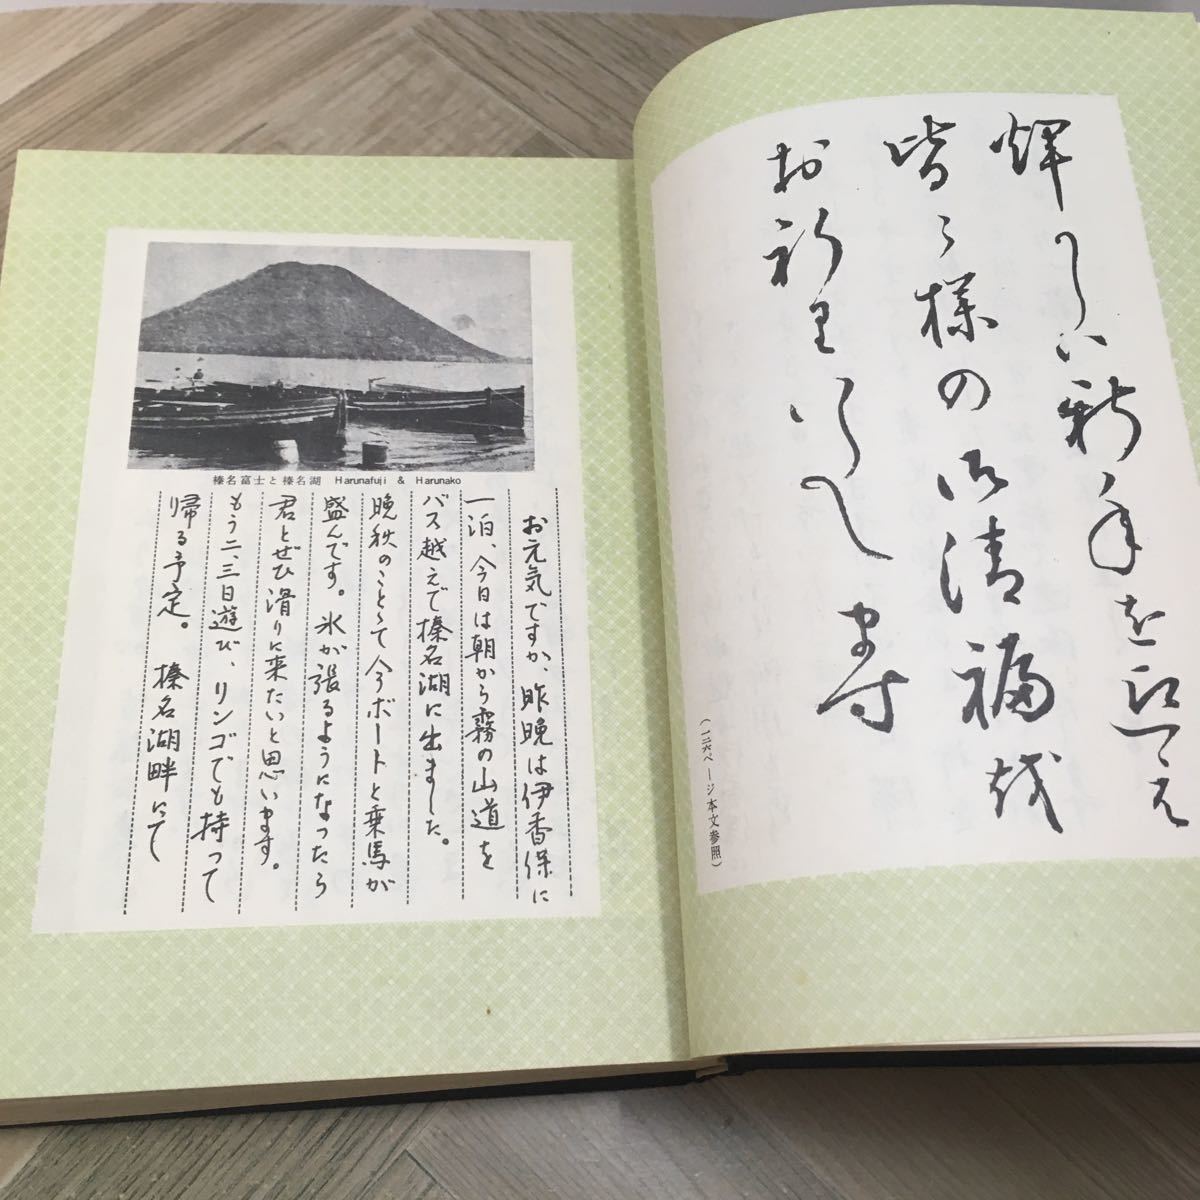 輝しい新年を迎え
皆々様の御清福を
お祈りいたし
ます
(一二六ページ本文参照)
榛名富士と榛名湖 Harunafuji & Harunako
お元気ですか、昨晩は伊香保に
一泊、今日は朝から霧の山道を
バス越えで榛名湖に出ました。
晩秋のこととて今ボートと乗馬が
盛んです。氷が張るようになったら
君とぜひ滑りに来たいと思います。
もう二、三日遊び、リンゴでも持って
帰る予定。 榛名湖畔にて